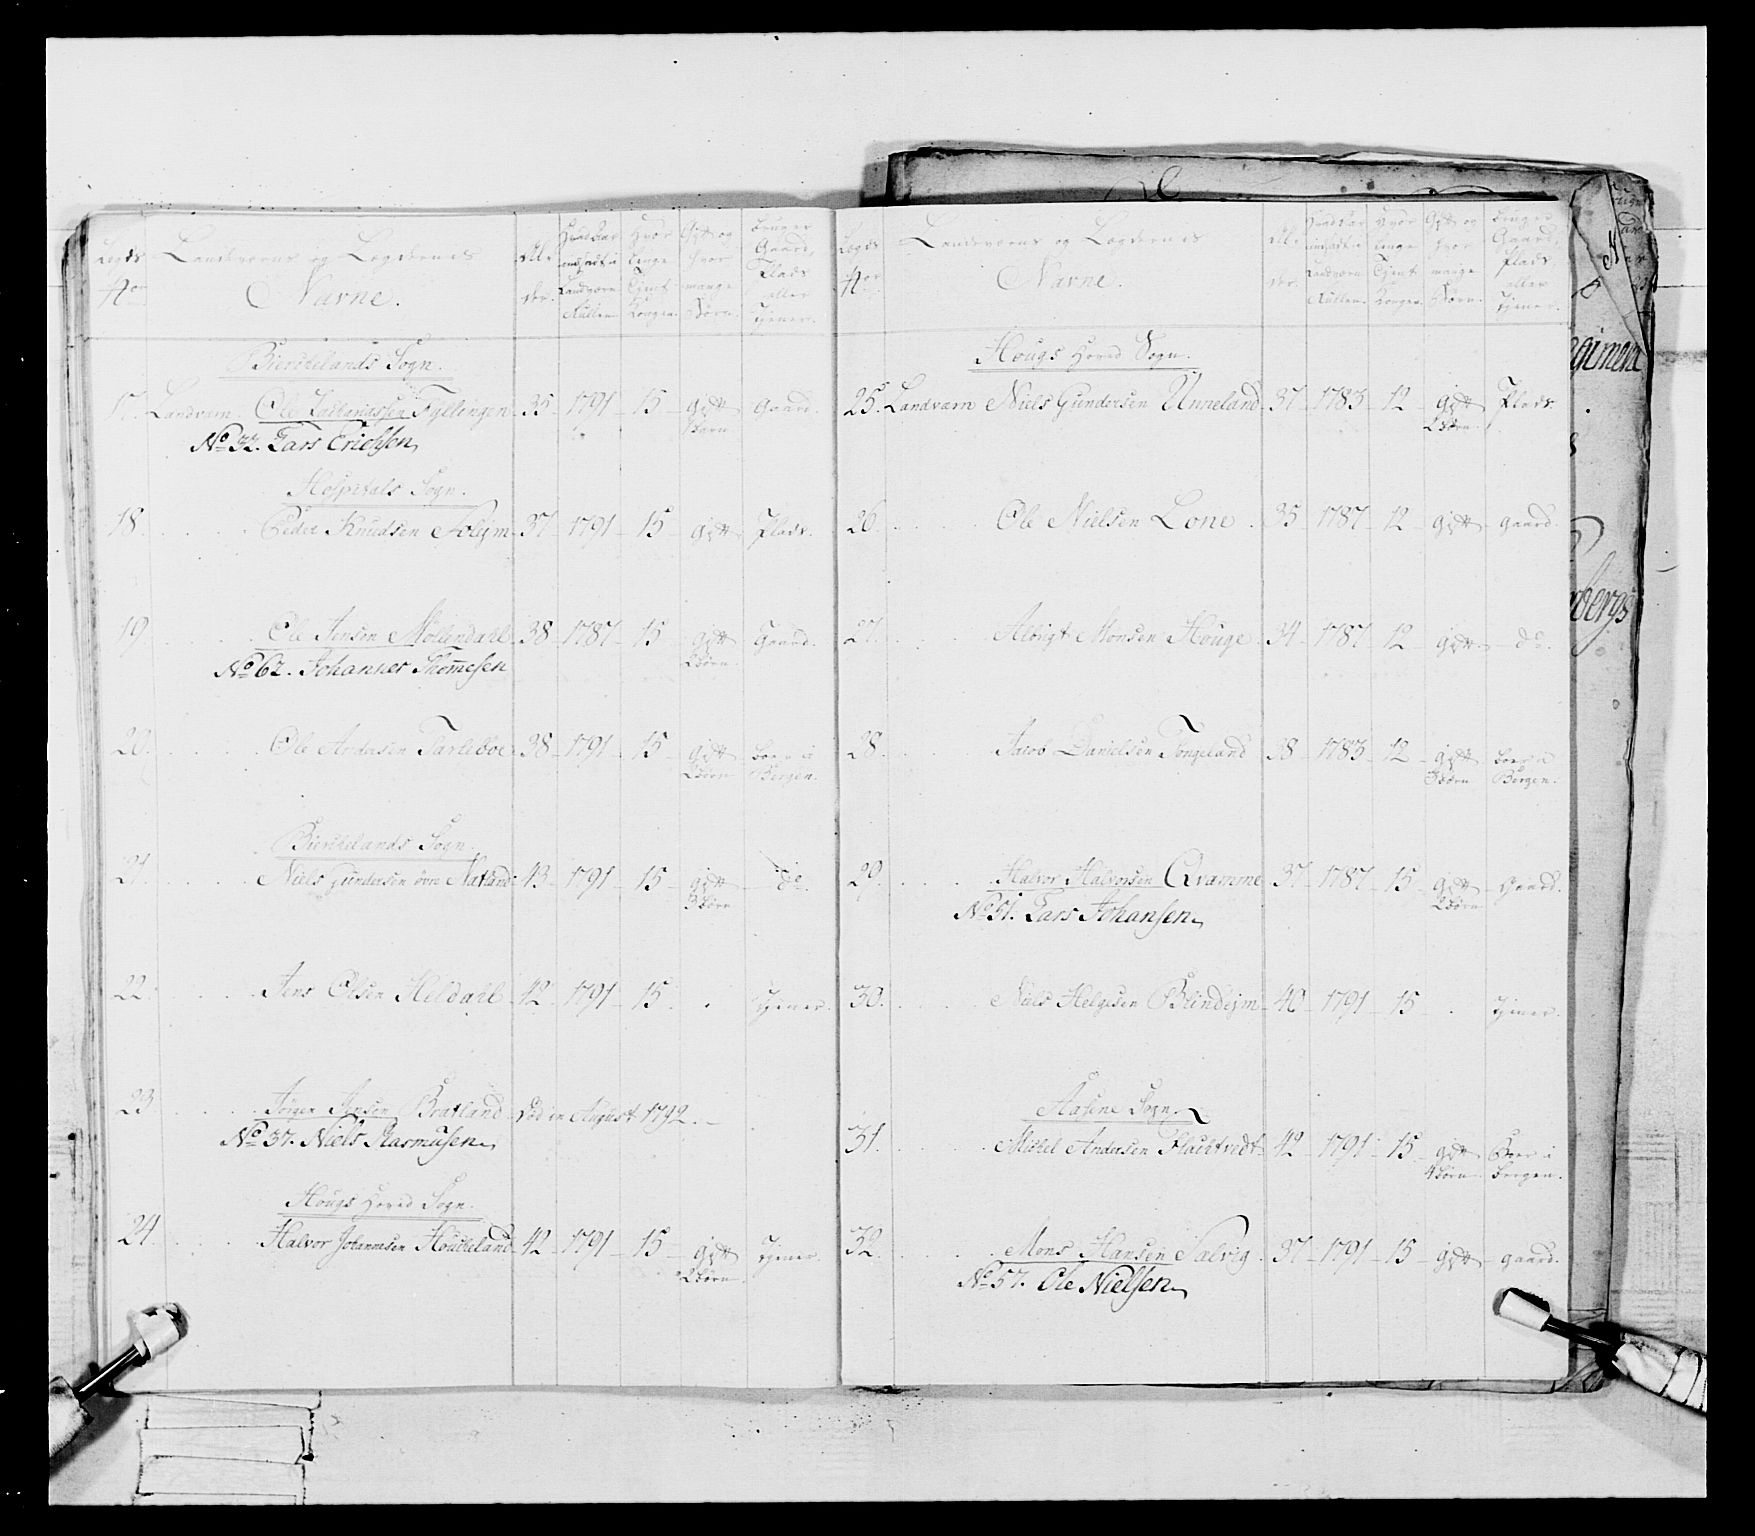 Lægds No Landeværns og Lægdernes Navne. Alder. Hvad Aar indsadt i Landværn Rullen. Hvor længe Tjent Kongen. Gift og hvor mange Børn. Bruger Gaard, Plads eller Tjener.
Birchelands Sogn.
17. Landværn. Ole Zachariassen Fyllingen 35 - 1791 - 15 - gift 1 barn gaard.
No 32. Lars Erichsen
Hospitals Sogn.
18. Peder Knudsen Solejm 37 - 1791 - 15 - gift Plads.
19. Ole Jensen Møllendahl 38 - 1787 - 15 - gift 2 børn Gaard.
No 62. Johannes Thomesen
20. Ole Andersen Tarleboe 38 - 1791 - 15 - gift 2 børn boer i Bergen.
Birchelands Sogn
21. Niels Gundersen øvre Natland 43 - 1791 - 15 - gift 3 børn do
22. Jens Olsen Heldahl 42 - 1791 - 15 . tjener.
23. Jørgen Jensen Bratland Død in August 1792.
No 37. Niels Rasmusen
Hougs Hoved Sogn.
24. Halvor Johannesen Houcheland 42 - 1791 - 15 - gift 2 børn tjener.
Lægds No Landeværns og Lægdernes Navne. Alder. Hvad Aar indsadt i Landværn Rullen. Hvor længe Tjent Kongen. Gift og hvor mange Børn. Bruger Gaard, Plads eller Tjener.
Hougs Hoved Sogn.
25. Landværn Niels Gundersen Unneland 37 - 1783 - 12 - gift 2 børn Plads.
26. Ole Nielsen Lone 35 - 1787 - 12 - gift - gaard.
27. Albrigt Monsen Houge 34 - 1787 - 12 - gift - do.
28. Jacob Danielsen Tongeland 38 - 1783 - 12 - gift 3 børn boer i Bergen.
29. Halvor Halvorsen Qvamme 37 - 1787 - 15 - gift 2 børn - Gaard.
No 51. Lars Johansen
30. Niels Helgesen Blindejm 40 - 1791 - 15 . tjener.
Aasene Sogn.
31. Michel Andersen Flachtvedt 42 - 1791 - 15 - gift 4 børn Boer i bergen.
32. Mons Hansen Salvig 37 - 1791 - 15 - gift - gaard.
No 57. Ole Nielsen